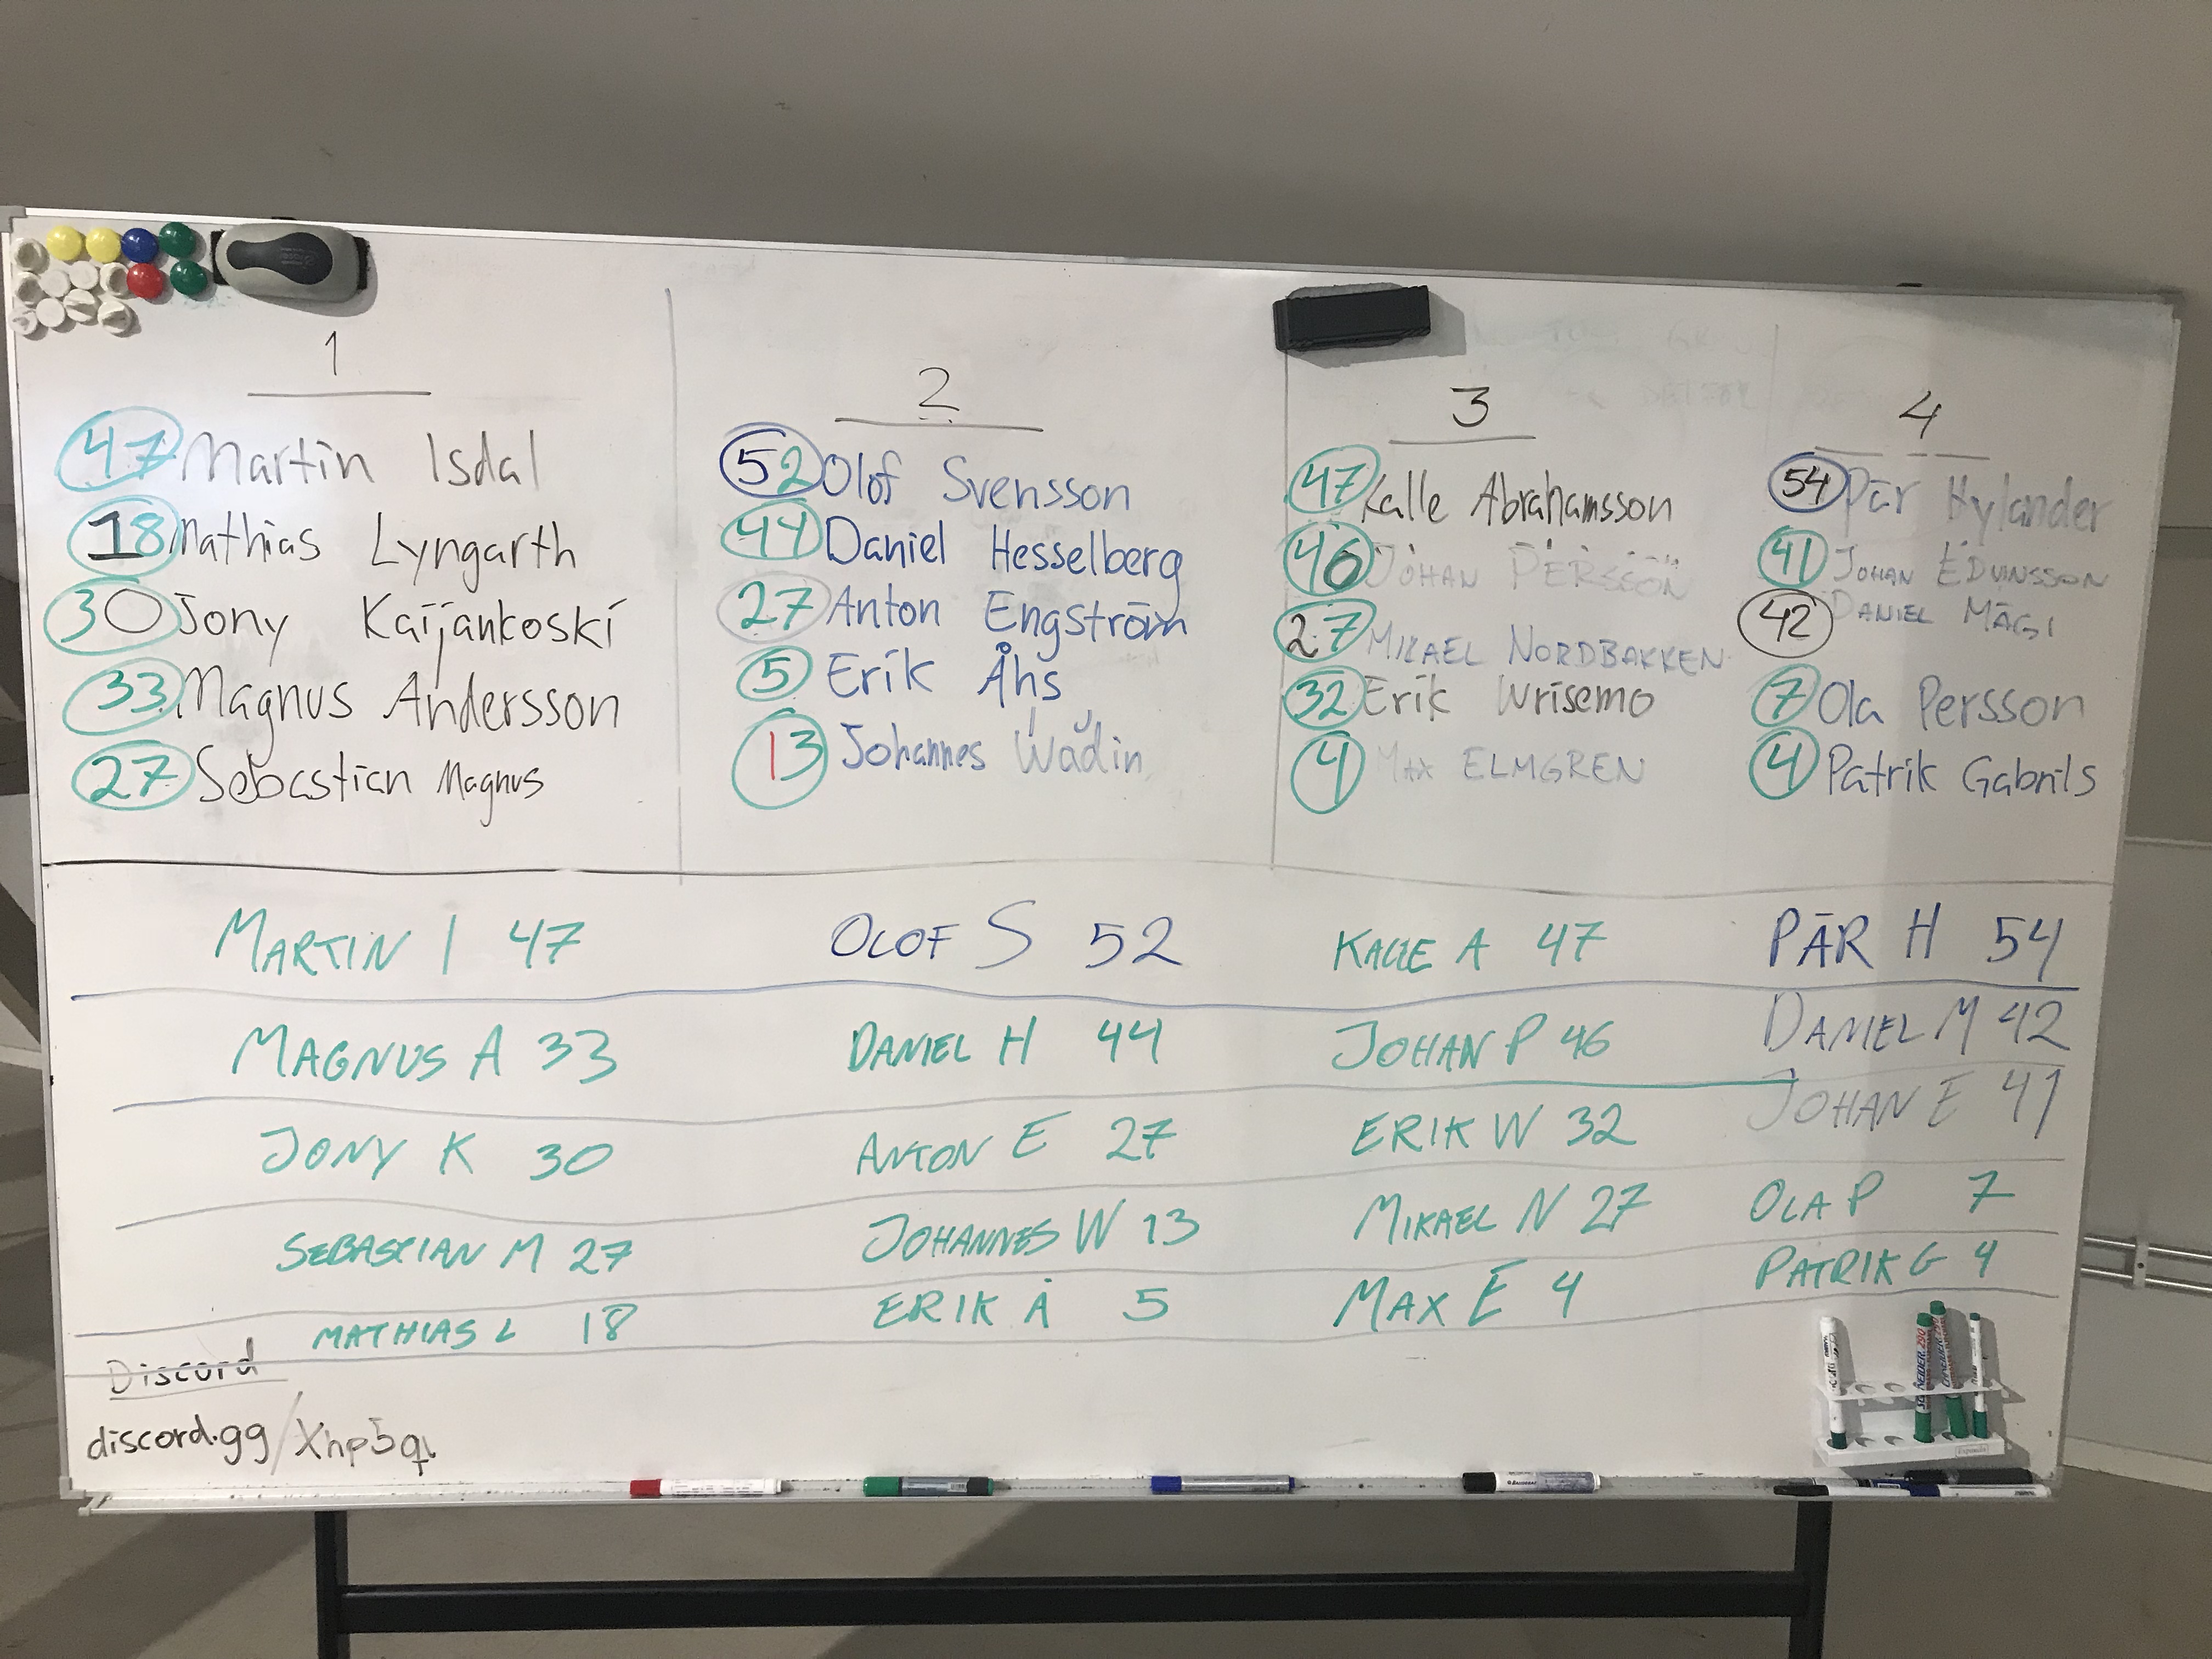 1
47 Martin Isdal
18 Mathias Lyngarth
30 Jony Kaijankoski
33 Magnus Andersson
27 Sebastian Magnus
2
52 Olof Svensson
44 Daniel Hesselberg
27 Anton Engström
5 Erik Åhs
13 Johannes Wadin
3
47 Kalle Abrahamsson
46 JOHAN PERSSON
27 MIKAEL NORDBAKKEN
32 Erik Wrisemo
4 MAX ELMGREN
4
54 Pär Hylander
41 JOHAN EDVINSSON
42 DANIEL MÄGI
7 Ola Persson
4 Patrik Gabrils
MARTIN I 47 OLOF S 52 KALLE A 47 PÄR H 54
MAGNUS A 33 DANIEL H 44 JOHAN P 46 DANIEL M 42
JONY K 30 ANTON E 27 ERIK W 32 JOHAN E 41
SEBASTIAN M 27 JOHANNES W 13 MIKAEL N 27 OLA P 7
MATHIAS L 18 ERIK Å 5 MAX E 4 PATRIK G 4
Discord
discord.gg/Xhp5qt